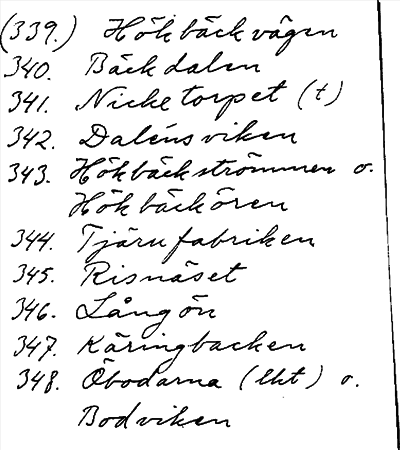 (339.) Hökbäckvägen
340. Bäckdalen
341. Nicketorpet (t)
342. Daléns viken
343. Hökbäckströmmen o.
Hökbäckören
344. Tjärufabriken
345. Risnäset
346. Långön
347. Käringbacken
348. Öbodarna (lht) o.
Bodviken